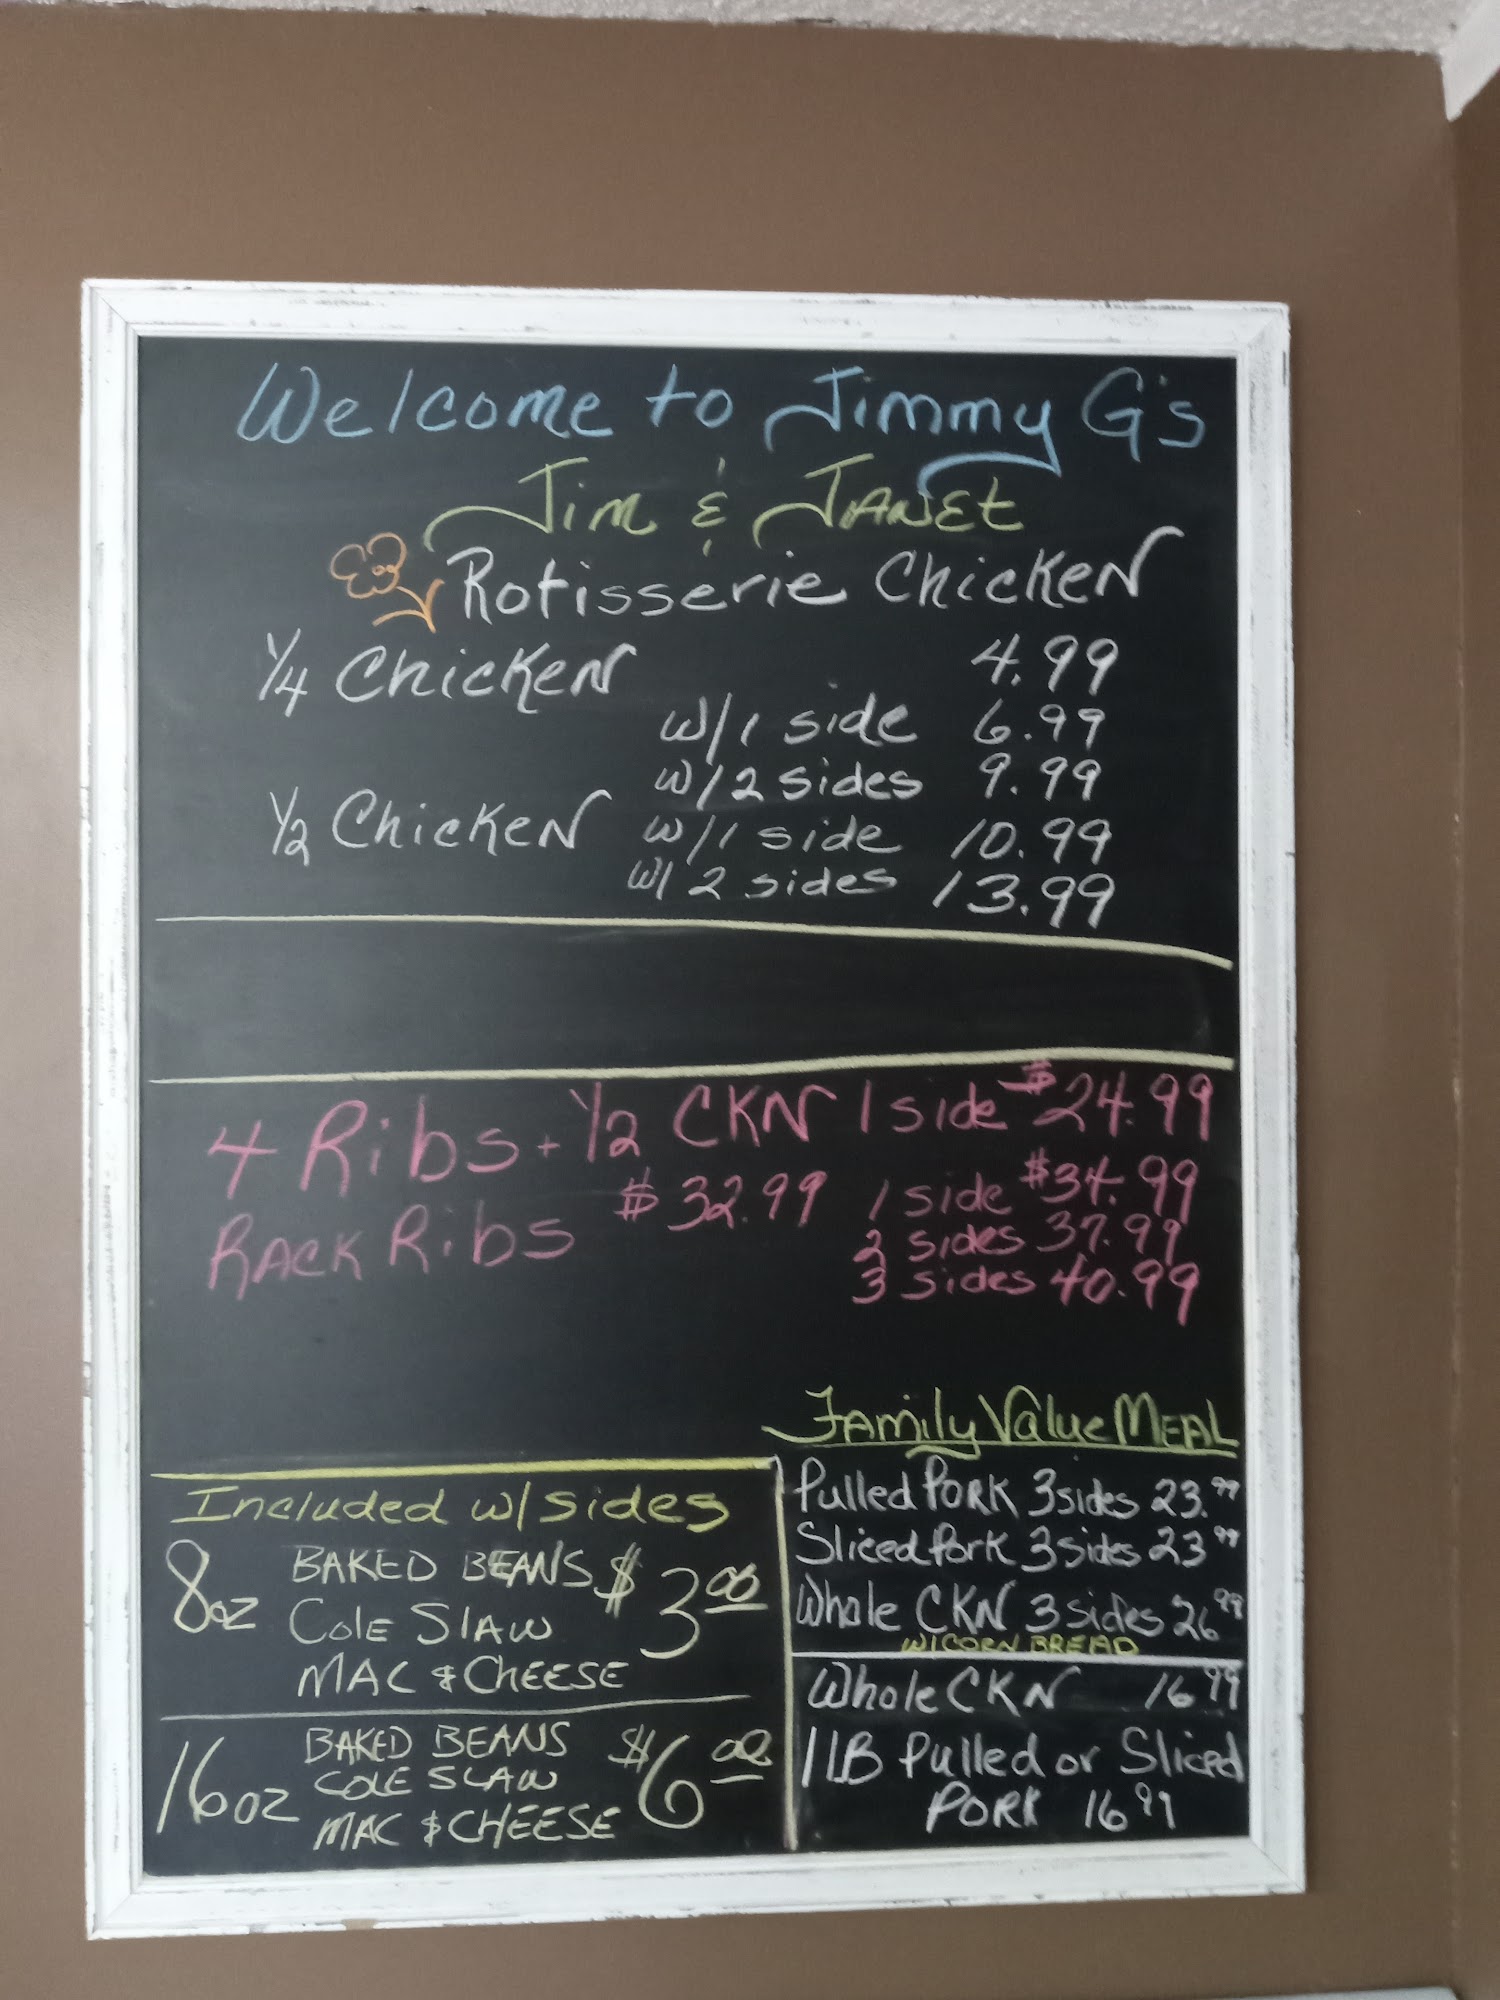 Welcome to Jimmy G's
Jim & Janet
Rotisserie Chicken
1/4 Chicken 4.99
w/1 side 6.99
w/2 sides 9.99
1/2 Chicken w/1 side 10.99
w/2 sides 13.99
4 Ribs + 1/2 CKN 1 side $24.99
Rack Ribs $32.99 1 side $34.99
2 sides 37.99
3 sides 40.99
Family Value Meal
Pulled Pork 3 sides 23.99
Sliced Pork 3 sides 23.99
Whole CKN 3 sides 26.99
W/CORN BREAD
Whole CKN 16.99
1 LB Pulled or Sliced
Pork 16.99
Included w/sides
8oz BAKED BEANS $3.00
Cole Slaw
MAC & CHEESE
16oz BAKED BEANS $6.00
COLE SLAW
MAC & CHEESE